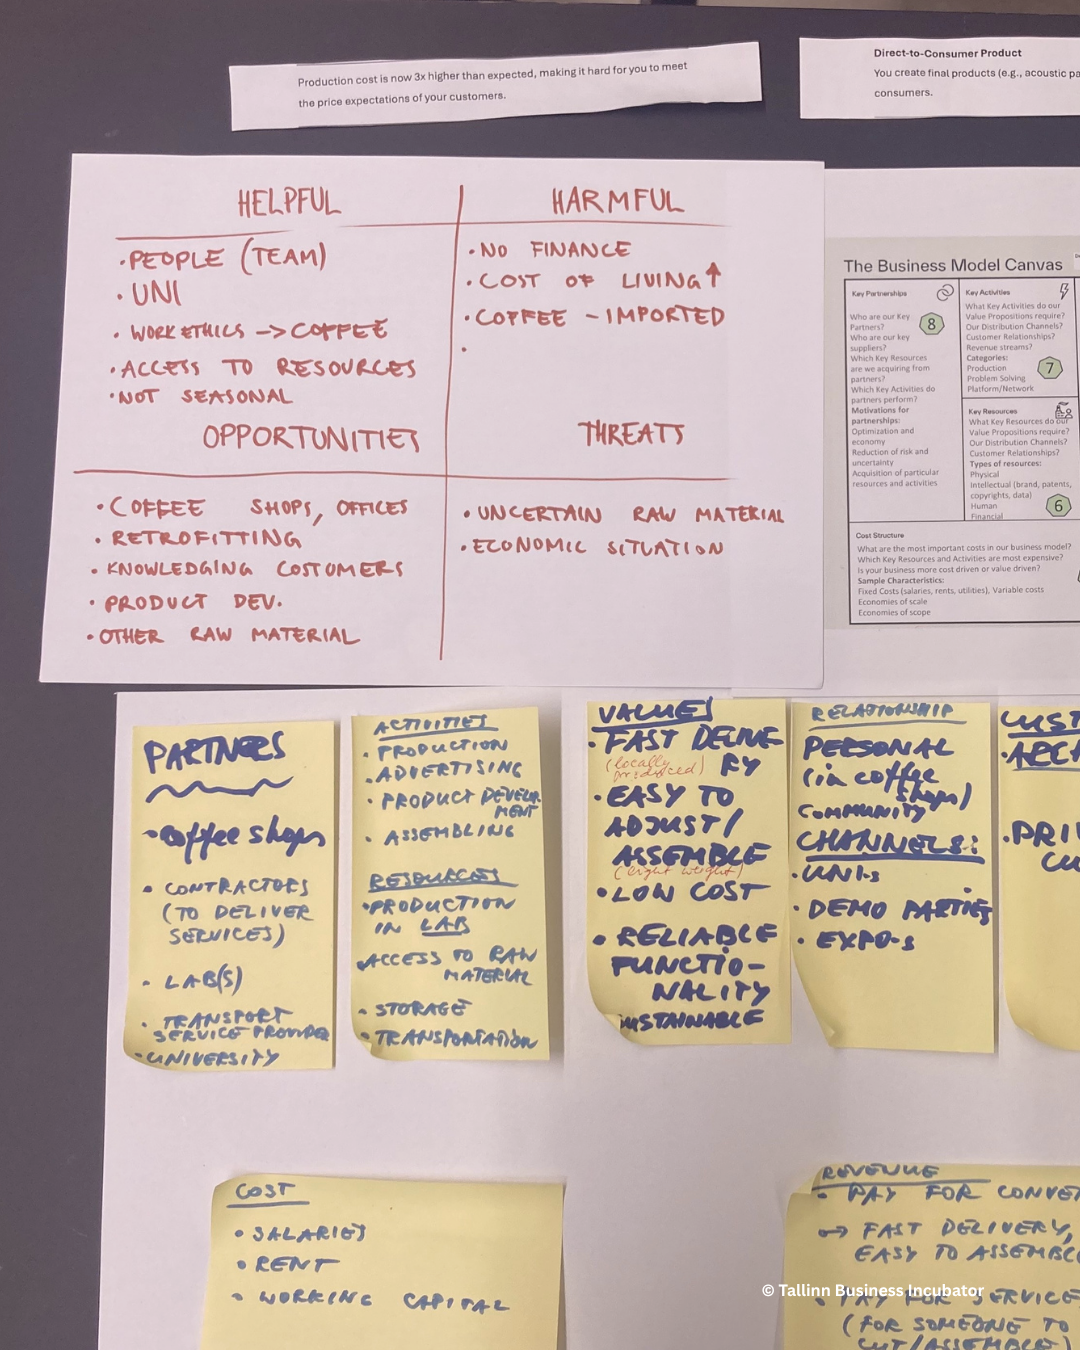 Production cost is now 3x higher than expected, making it hard for you to meet
the price expectations of your customers.
Direct-to-Consumer Product
You create final products (e.g., acoustic pa
consumers.
HELPFUL
• PEOPLE (TEAM)
• UNI
• WORK ETHICS -> COFFEE
• ACCESS TO RESOURCES
• NOT SEASONAL
HARMFUL
• NO FINANCE
• COST OF LIVING ↑
• COFFEE - IMPORTED
•
OPPORTUNITIES
• COFFEE SHOPS, OFFICES
• RETROFITTING
• KNOWLEDGING COSTUMERS
• PRODUCT DEV.
• OTHER RAW MATERIAL
THREATS
• UNCERTAIN RAW MATERIAL
• ECONOMIC SITUATION
The Business Model Canvas
Key Partnerships
Who are our Key
Partners?
Who are our key
suppliers?
Which Key Resources
are we acquiring from
partners?
Which Key Activities do
partners perform?
Motivations for
partnerships:
Optimization and
economy
Reduction of risk and
uncertainty
Acquisition of particular
resources and activities
8
Key Activities
What Key Activities do our
Value Propositions require?
Our Distribution Channels?
Customer Relationships?
Revenue streams?
Categories:
Production
Problem Solving
Platform/Network
7
Key Resources
What Key Resources do our
Value Propositions require?
Our Distribution Channels?
Customer Relationships?
Types of resources:
Physical
Intellectual (brand, patents,
copyrights, data)
Human
Financial
6
Cost Structure
What are the most important costs in our business model?
Which Key Resources and Activities are most expensive?
Is your business more cost driven or value driven?
Sample Characteristics:
Fixed Costs (salaries, rents, utilities), Variable costs
Economies of scale
Economies of scope
PARTNERS
• Coffee shops
• CONTRACTORS
(TO DELIVER
SERVICES)
• LAB(S)
• TRANSPORT
SERVICE PROVIDER
• UNIVERSITY
ACTIVITIES
• PRODUCTION
• ADVERTISING
• PRODUCT DEVELOP-
MENT
• ASSEMBLING
RESOURCES
• PRODUCTION
IN LAB
• ACCESS TO RAW
MATERIAL
• STORAGE
• TRANSPORTATION
VALUES
• FAST DELIVE
(locally
produced) RY
• EASY TO
ADJUST/
ASSEMBLE
(light weight)
• LOW COST
• RELIABLE
FUNCTIO-
NALITY
SUSTAINABLE
RELATIONSHIP
PERSONAL
(in coffee
shops)
COMMUNITY
CHANNELS:
• UNI-s
• DEMO PARTIES
• EXPO-s
CUST
• ARCH
• PRI
CU
COST
• SALARIES
• RENT
• WORKING CAPITAL
REVENUE
• PAY FOR CONVE
→ FAST DELIVERY,
EASY TO ASSEMBLE
• PAY FOR SERVICE
(FOR SOMEONE TO
CUT/ASSEMBLE)
© Tallinn Business Incubator